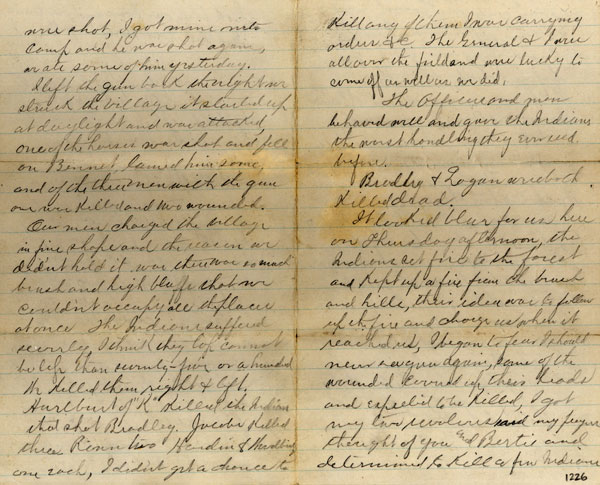 were shot, I got mine into
camp and he was shot again,
we ate some of him yesterday.
I left the gun back the night we
struck the village it started up
at daylight and was attacked,
one of the horses was shot and fell
on Bennet, lamed him some,
and of the three men with the gun
one was Killed and two wounded.
Our men charged the village
in fine shape and the reason we
didn't hold it, was there was so much
brush and high bluffs that we
couldn't occupy all the places
at once The Indians suffered
severely, I think they lost cannot
be less than seventy-five or a hundred
We Killed them right & left,
Hurlburt of "K" Killed the Indian
that shot Bradley. Jacobs Killed
three Rennie two Hardin &
one each, I didn't get a chance to
Kill any of them I was carrying
orders &c. The General & I were
all over the field and were lucky to
come off as well as we did.
The Officers and men
behaved well and gave the Indians
the worst handling they ever had
before.
Bradley & Logan were both
Killed dead.
It looked blue for us here
on Thursday afternoon, the
Indians set fire to the forest
and Kept up a fire from the brush
and hills, their idea was to follow
up the fire and charge us when it
reached us, I began to fear I should
never see you again, some of the
wounded covered up their heads
and expected to be Killed, I got
my two revolvers said my prayers
thought of you and Bertie and
determined to Kill a few Indians
1226